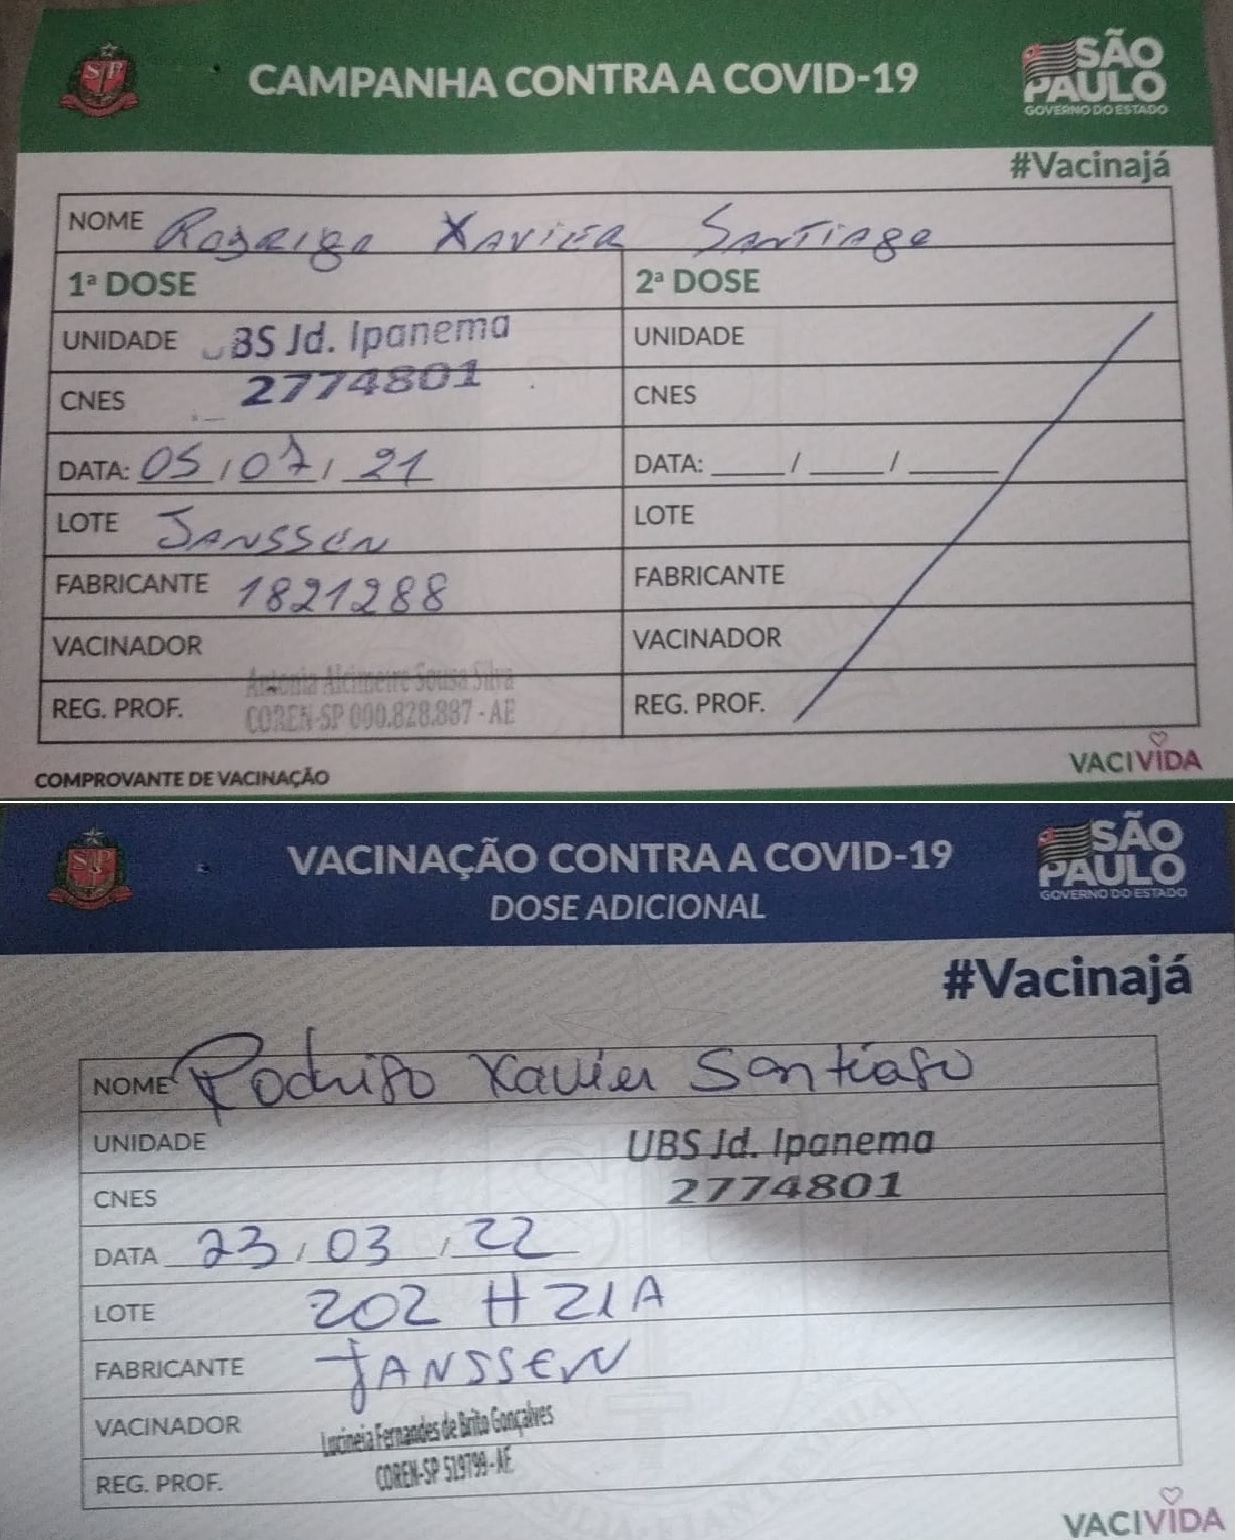 SP
CAMPANHA CONTRA A COVID-19
SÃO
PAULO
GOVERNO DO ESTADO
#Vacinajá
NOME Rodrigo Xavier Santiago
1ª DOSE
2ª DOSE
UNIDADE UBS Jd. Ipanema
UNIDADE
CNES 2774801
CNES
DATA: 05/07/21
DATA: ____/____/____
LOTE JANSSEN
LOTE
FABRICANTE 1821288
FABRICANTE
VACINADOR Antonia Alcimeire Sousa Silva
VACINADOR
REG. PROF. COREN-SP 000.828.887 - AE
REG. PROF.
COMPROVANTE DE VACINAÇÃO
VACIVIDA
SP
VACINAÇÃO CONTRA A COVID-19
DOSE ADICIONAL
SÃO
PAULO
GOVERNO DO ESTADO
#Vacinajá
NOME Rodrigo Xavier Santiago
UNIDADE UBS Jd. Ipanema
CNES 2774801
DATA 23/03/22
LOTE 202 H21A
FABRICANTE JANSSEN
VACINADOR Lucineia Fernandes de Brito Gonçalves
REG. PROF. COREN-SP 519799 - AE
VACIVIDA